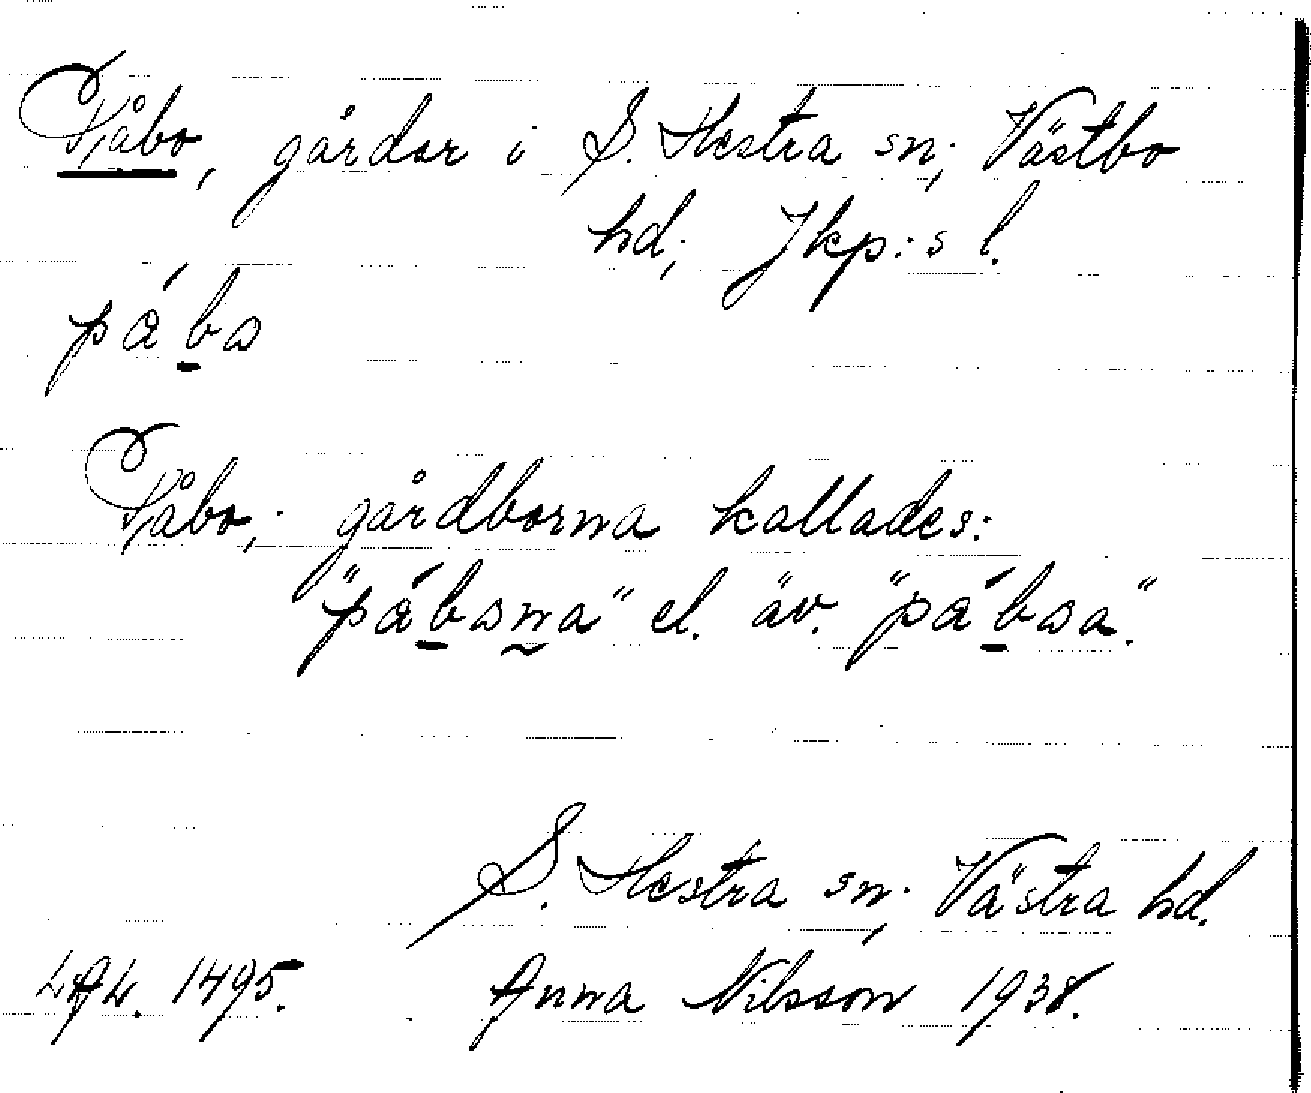 Påbo, gårdar i S. Hestra sn; Västbo
hd; Jkp:s l.
pá̂bo
Påbo; gårdborna kallades:
"pábona" el. äv. "páboa".
S. Hestra sn; Västra hd.
LAL. 1495. Anna Nilsson 1938.